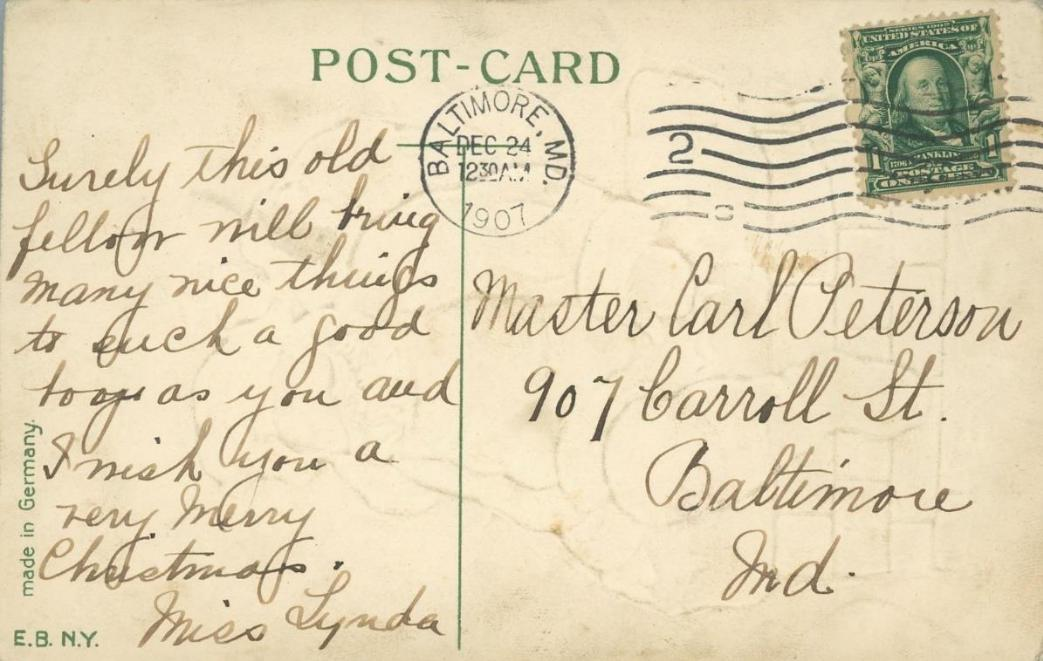 POST-CARD
SERIES 1902
UNITED STATES OF
AMERICA
1 FRANKLIN 1
POSTAGE
ONE CENT
BALTIMORE, MD.
DEC 24
1230AM
1907
2
Surely this old
fellow will bring
many nice things
to such a good
boy as you and
I wish you a
very Merry
Christmas.
Miss Lynda
Master Carl Peterson
907 Carroll St.
Baltimore
Md.
made in Germany.
E.B. N.Y.